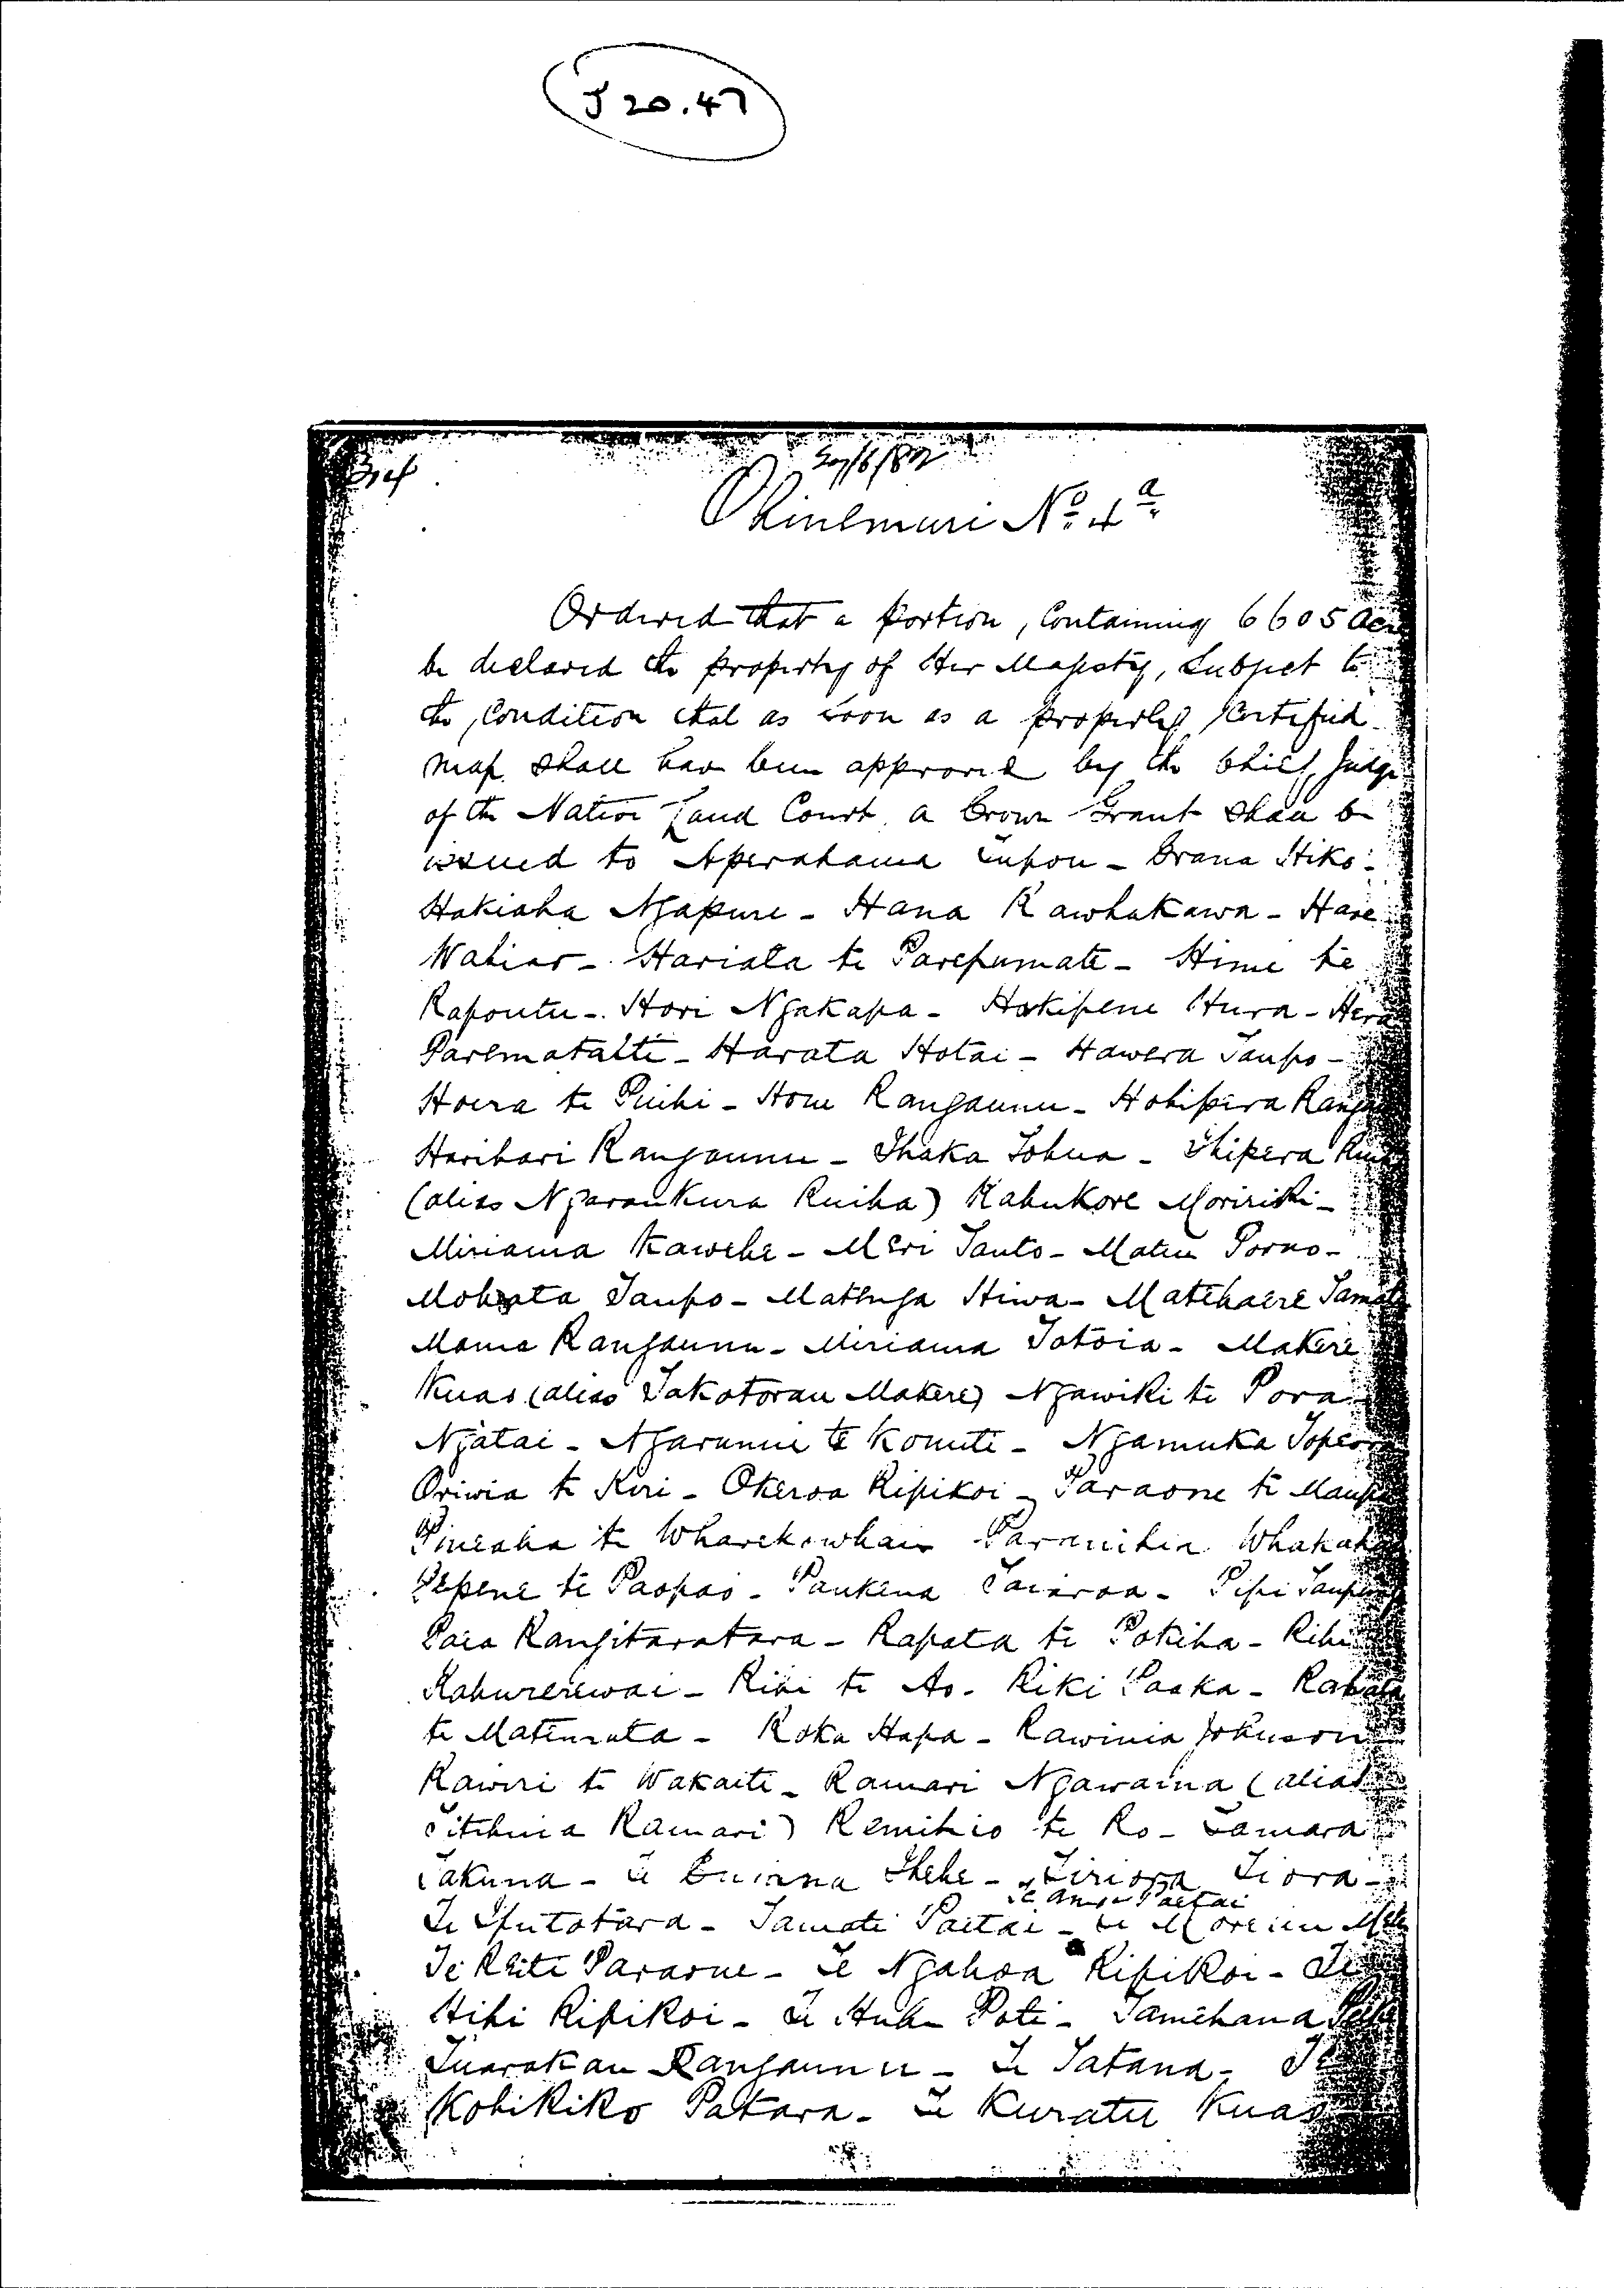 J 20.47
Ohinemuri No. 4a
Ordered that a portion, Containing 6605 Acres
be declared the property of Her Majesty, Subject to
the Condition that as soon as a properly Certified
map shall have been approved by the Chief Judge
of the Native Land Court a Crown Grant shall be
issued to Aperahama - Hiko -
Hakiaha Ngapure - Hana Kawhakawa - Hare
- Hariata te Parepumate - Hime te
Rapoutu - Hori Ngakapa - Hokipene Hura - Hera
Parematatte - Harata Hotai - Hawera Taupo -
Hoera te Puihi - Hone Rangaunu - Hohipera
Harihari Rangaunu - Ihaka Tohua - Ihipera
(alias Ngaraukura Ruiha) Kahukore Moririki -
Miriama Kawehe - Meri Tauto - Matiu Porno -
Taupo - Matenga Hiwa - Matehaere
Mania Rangaunu - Miriama Totoia - Makere
Kuao (alias Takotorau Makere) Ngawiki te Pora
Ngatai - Ngarunui te Komiti - Ngamuka
Oriwia te Kiri - Okeroa Ripikoi - Paraone te
Pineaha te Wharekowhai
Pepene te Paopao - Paukena Tairoa - Pipi
Paia Rangitaratara - Rapata te Pokiha - Rihi
Kahurerewai - Rihi te Ao - Riki Paaka - Rahata
te - Roka Hapa - Rawinia Johnson
Rawiri te Wakaiti - Ramari Ngawaina (alias
Ramari) Remihio te Ro - Tamara
Takuna - Te Ihehe - Tiriora Tiora -
Paetai
Te Iputotara - Tamati Paetai - Te
Te Reiti Paraone - Te Ngahoa Ripikoi - Te
Hihi Ripikoi - Te Poti - Tamehana
Tuarakau Rangaunu - Te Tatana - Te
Kohikiko Patara - Te Kuratu Kuao